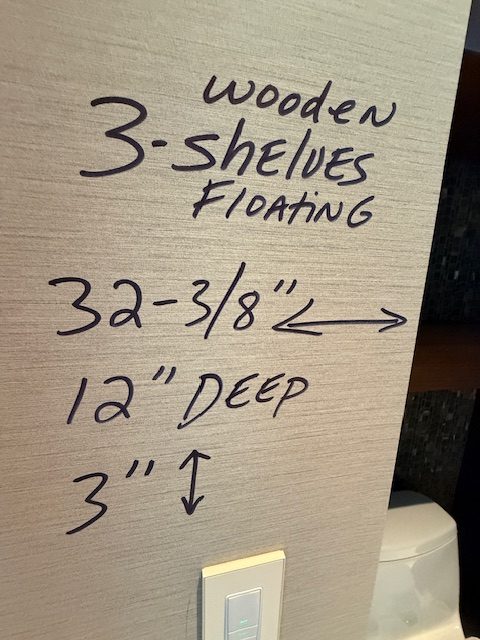 wooden
3-Shelves
Floating
32-3/8"
12" DEEP
3"